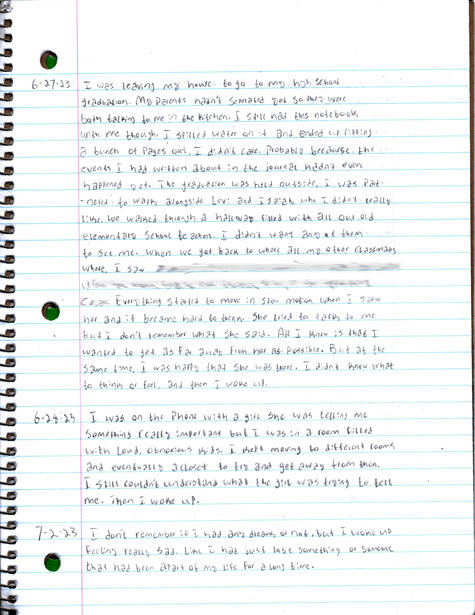 6-27-23 I was leaving my house to go to my high school
graduation. My parents hadn't seperated yet so they were
both talking to me in the kitchen. I still had this notebook
with me though. I spilled water on it and ended up ripping
a bunch of pages out. I didn't care. Probably because the
events I had written about in the journal hadn't even
happened yet. The graduation was held outside. I was part-
nered to walk alongside Levi and Isaiah who I didn't really
like. We walked through a hallway filled with all our old
elementary school teachers. I didn't want any of them
to see me. When we got back to where all my other classmates
where, I saw
Everything started to move in slow motion when I saw
her and it became hard to think. She tried to talk to me
but I don't remember what she said. All I know is that I
wanted to get as far away from her as possible. But at the
same time, I was happy that she was there. I didn't know what
to think or feel, and then I woke up.
6-28-23 I was on the phone with a girl. She was telling me
something really important but I was in a room filled
with loud, obnoxious kids. I kept moving to different rooms
and eventually a closet to try and get away from them.
I still couldn't understand what the girl was trying to tell
me. Then I woke up.
7-2-23 I don't remember if I had any dreams or not, but I woke up
feeling really sad. Like I had just lost something or someone
that had been apart of my life for a long time.